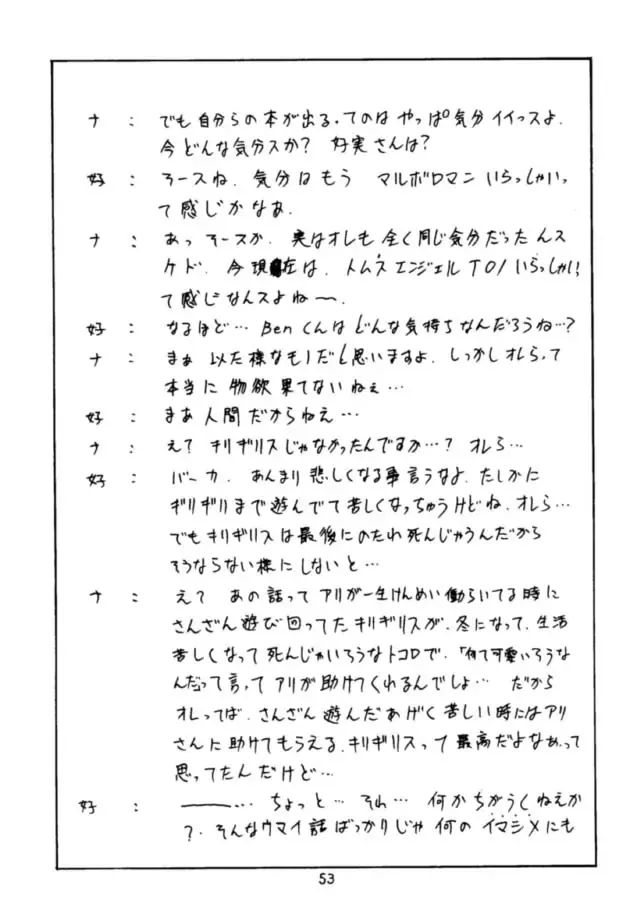 ナ : でも自分らの本が出る。てのは やっぱ気分 イイっスよ.
今どんな気分スか? 好実さんは?
好 : そースね. 気分はもう マルボロマン いらっしゃいっ
て感じかなあ.
ナ : あっ そースか. 実はオレも 全く同じ気分だったんス
ケド. 今現在は. トムスエンジェル T01 いらっしゃいっ
て感じなんスよねー.
好 : なるほど… Benくんは どんな気持ちなんだろうね…?
ナ : まぁ 似た様なモノだと思いますよ. しっかしオレらって
本当に 物欲果てないねぇ…
好 : まあ 人間だからねえ…
ナ : え? キリギリスじゃなかったんですか…? オレら…
好 : バーカ. あんまり 悲しくなる事言うなよ. たしかに
ギリギリまで遊んでて 苦しくなっちゃうけどね. オレら…
でもキリギリスは最後にのたれ死んじゃうんだから
そうならない様にしないと…
ナ : え? あの話ってアリが一生けんめい働らいてる時に
さんざん遊び回ってたキリギリスが. 冬になって. 生活
苦しくなって死んじゃいそうなトコロで. 「何て可愛いそうな
んだ」って言ってアリが助けてくれるんでしょ… だから
オレってば. さんざん遊んだあげく苦しい時にはアリ
さんに助けてもらえる. キリギリスって最高だよなぁって
思ってたんだけど…
好 : ―――… ちょっと… それ… 何かちがうくねえか
?. そんなウマイ話ばっかりじゃ 何のイマシメにも
53